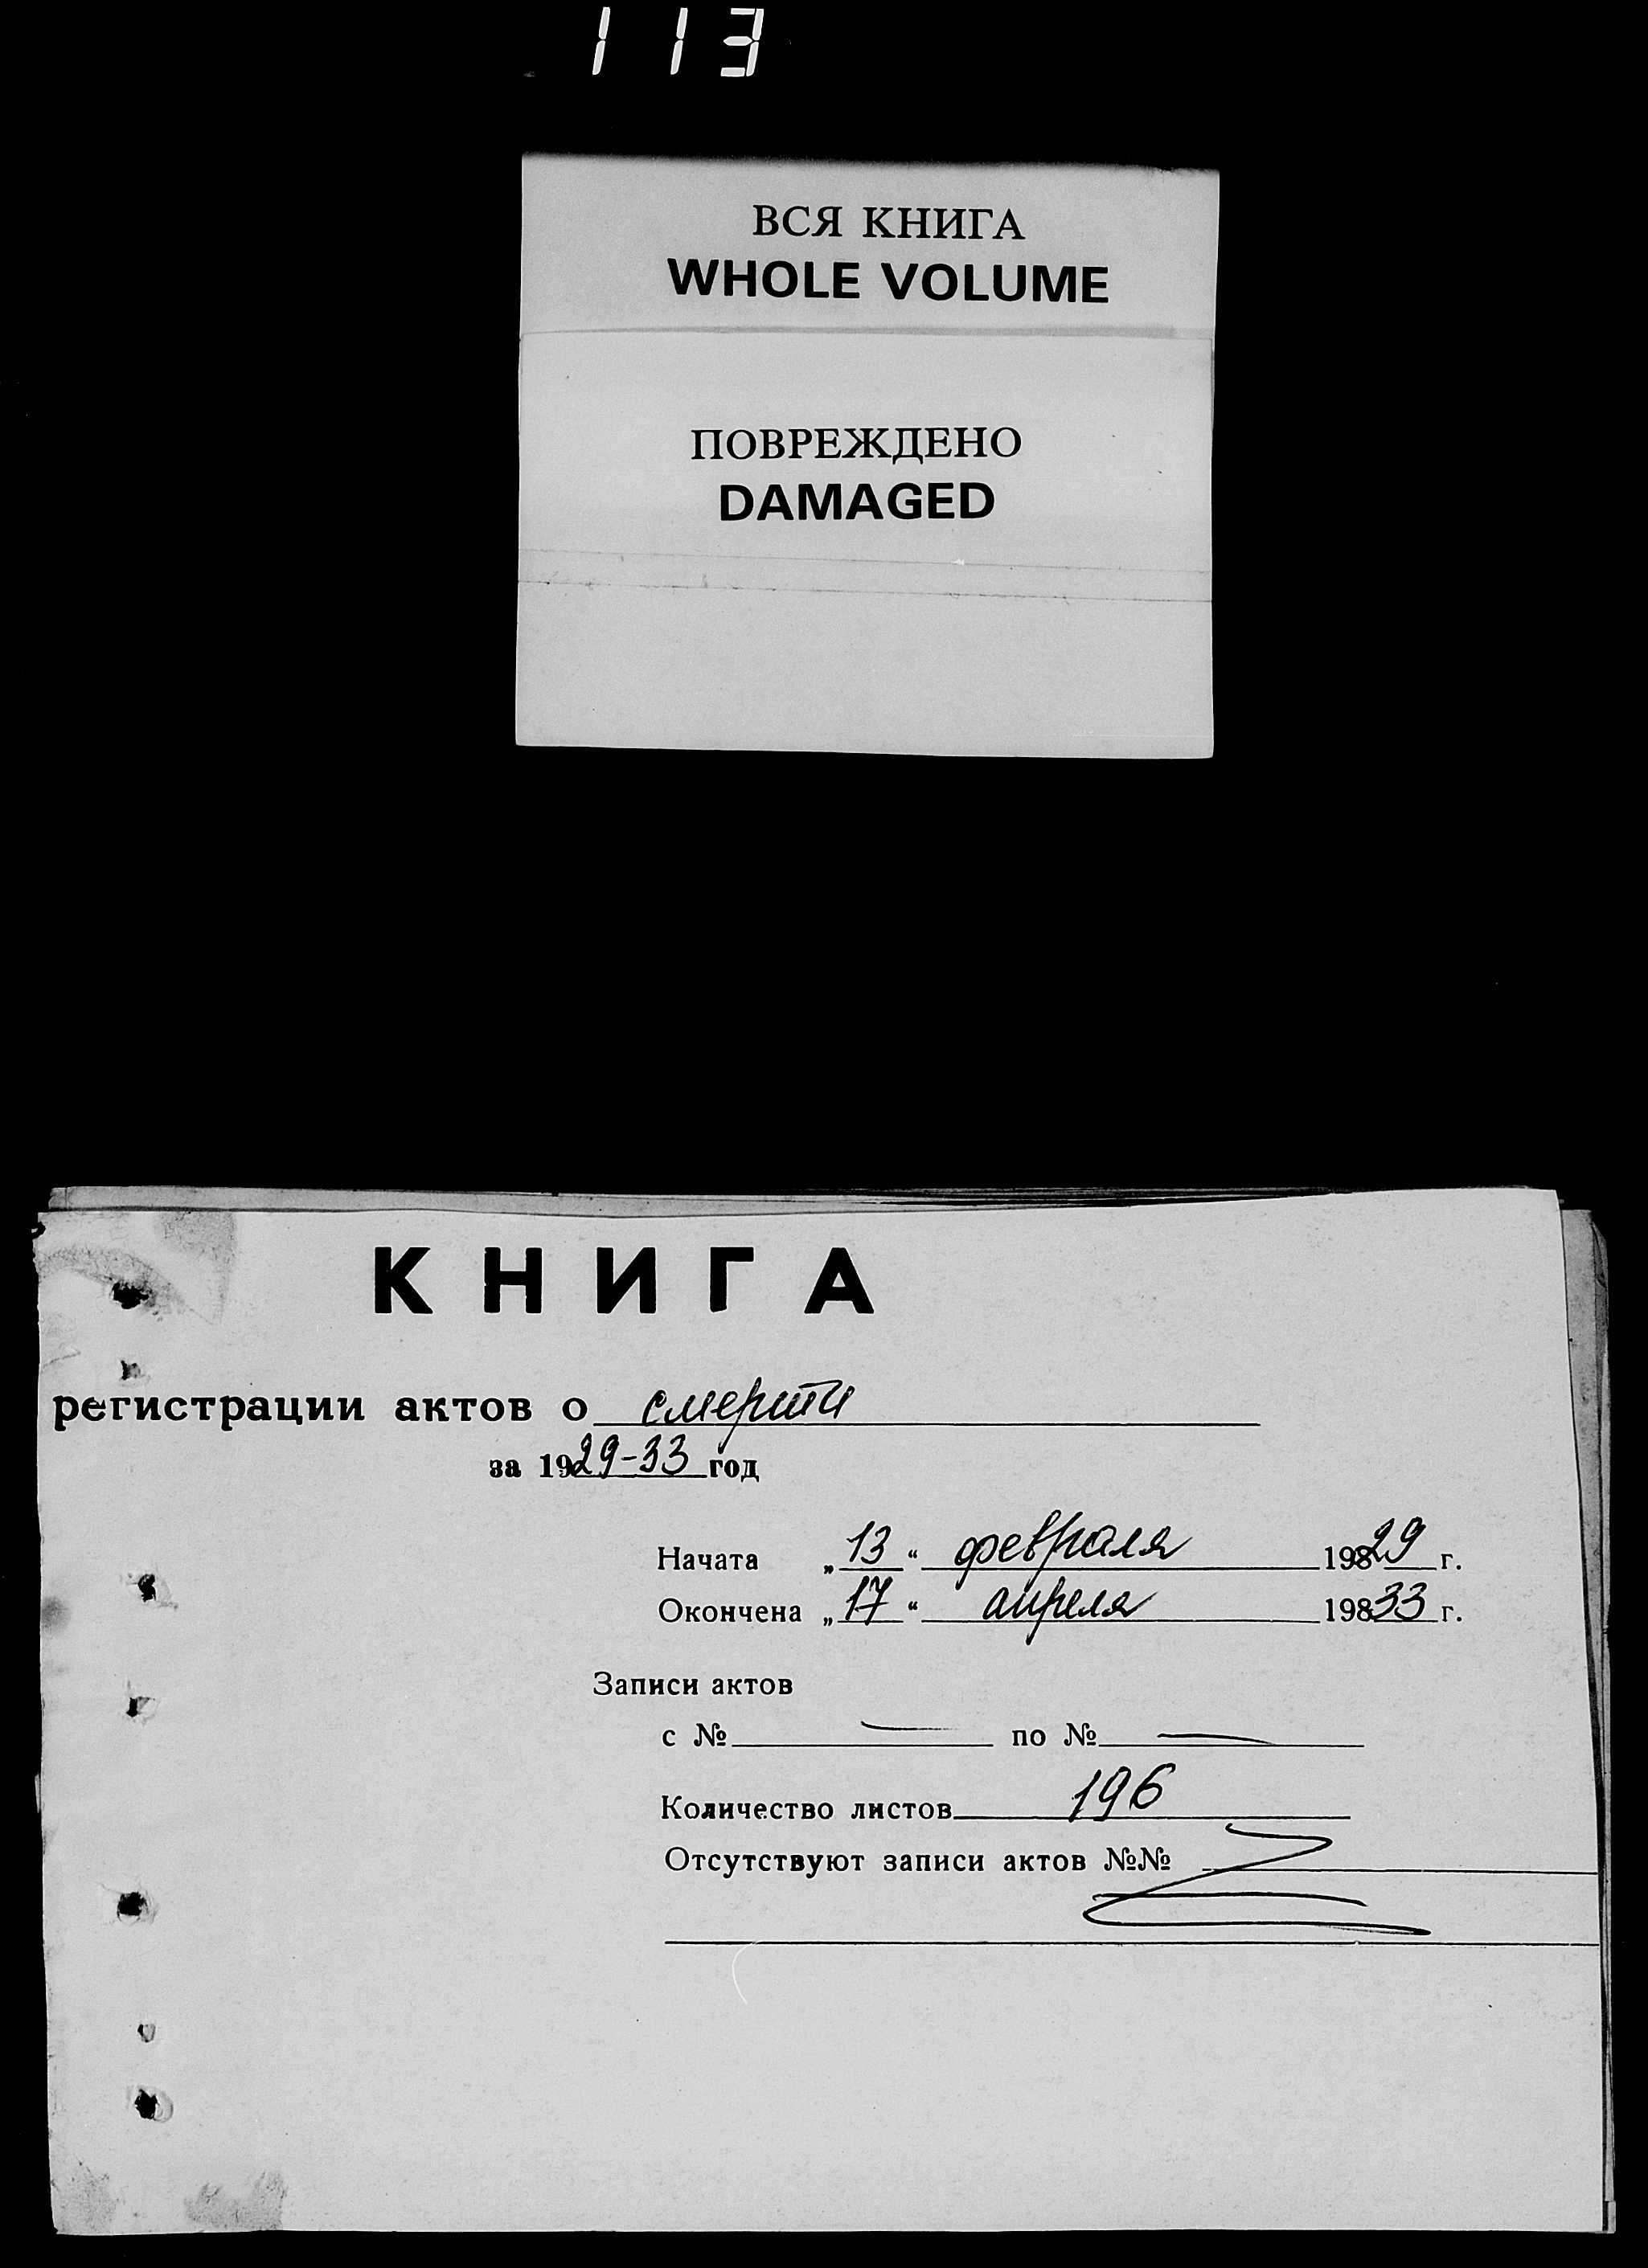 113
ВСЯ КНИГА
WHOLE VOLUME
ПОВРЕЖДЕНО
DAMAGED
КНИГА
регистрации актов о смерти
за 1929-33 год
Начата „13“ февраля 19829 г.
Окончена „17“ апреля 19833 г.
Записи актов
с № — по № —
Количество листов 196
Отсутствуют записи актов №№